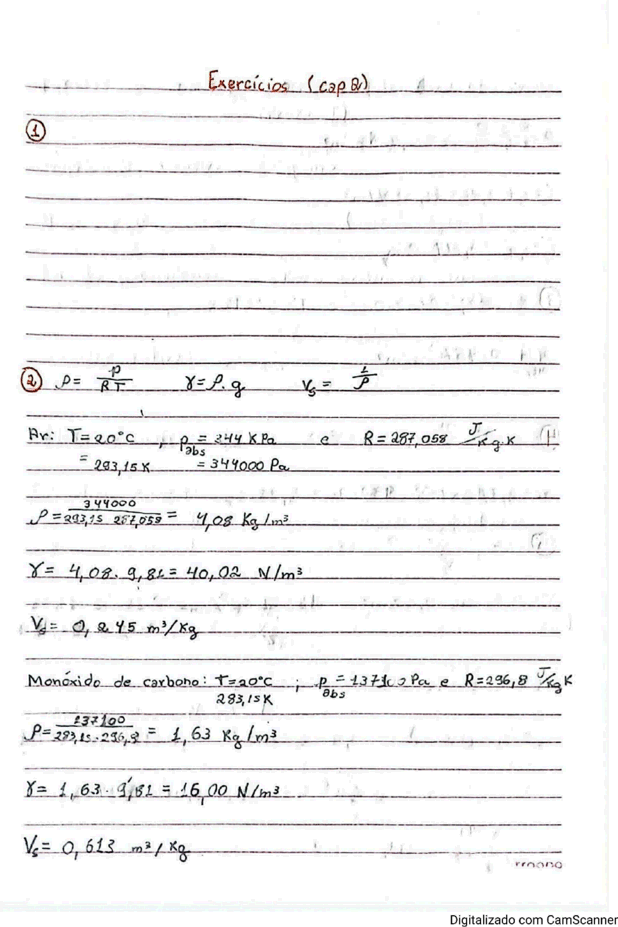 Exercícios (cap 2)
①
② ρ= p/RT γ=ρ.g Vs= 1/ρ
Ar: T=20°C , p abs = 344 KPa e R=287,058 J/Kg K
= 293,15K = 344000 Pa
ρ= 344000/293,15 287,058 = 4,08 Kg/m³
γ= 4,08. 9,81= 40,02 N/m³
Vs= 0,245 m³/Kg
Monóxido de carbono: T=20°C ; p abs = 137100 Pa e R=296,8 J/Kg K
293,15K
ρ= 137100/293,15.296,8 = 1,63 Kg/m³
γ= 1,63. 9,81 = 16,00 N/m³
Vs= 0,613 m³/Kg
Digitalizado com CamScanner